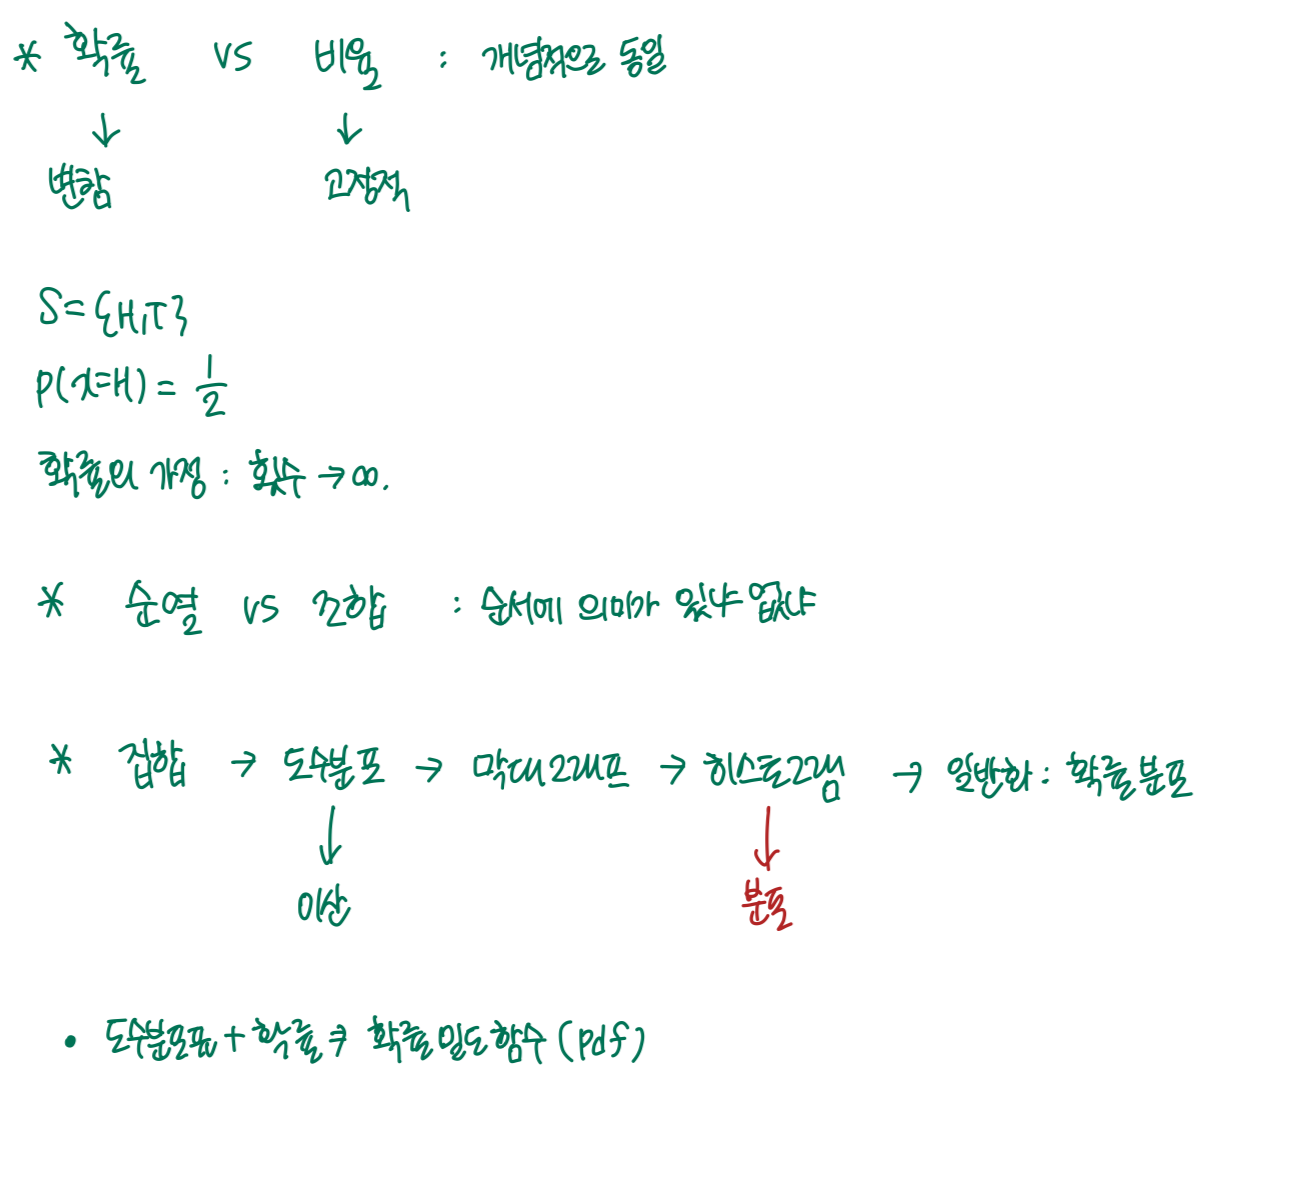 * 확률 vs 비율 : 개념적으로 동일
↓ ↓
변함 고정적
S={H,T}
P(x=H) = 1/2
확률의 가정 : 횟수 → ∞.
* 순열 vs 조합 : 순서에 의미가 있냐 없냐
* 집합 → 도수분포 → 막대그래프 → 히스토그램 → 일반화 : 확률분포
↓ ↓
이산
• 도수분포표 + 확률 → 확률밀도함수 (pdf)